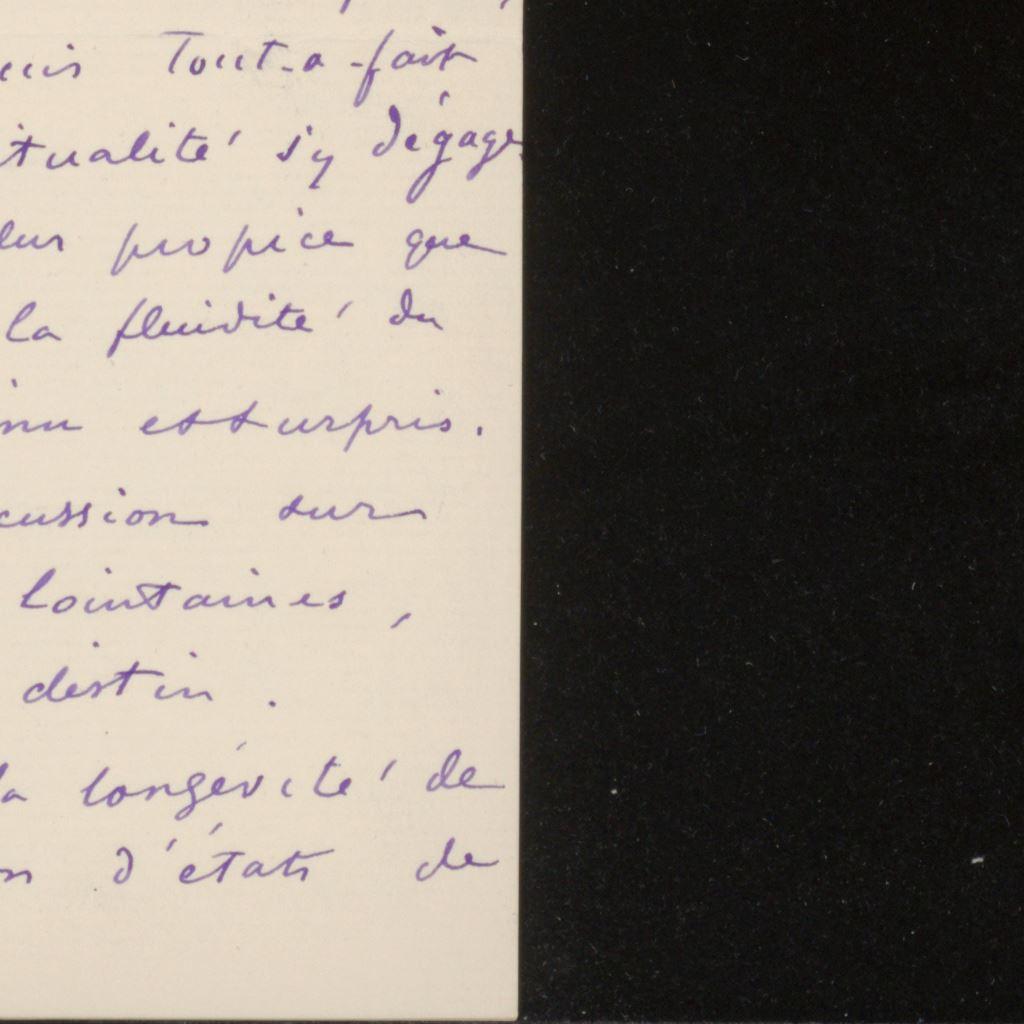 Tout-a-fait
itualité s'y dégage
propice que
la fluidité du
inu est surpris.
cussion sur
lointaines,
destin.
la longévité de
on d'états de